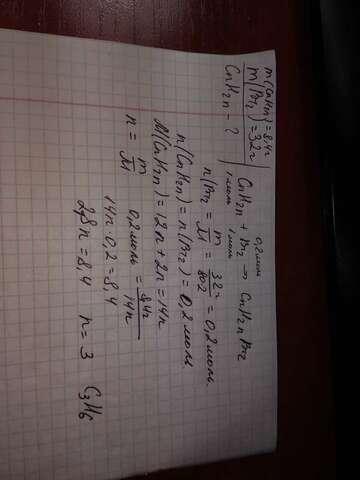 m(CnH2n) = 8,4г
m(Br2) = 32г
CnH2n - ?
0,2моль
CnH2n + Br2 → CnH2nBr2
1моль 1моль
n(Br2 = m/M = 32/80·2 = 0,2моль
n(CnH2n) = n(Br2) = 0,2моль
M(CnH2n) = 12n + 2n = 14n
n = m/M 0,2моль = 8,4г/14n
14n · 0,2 = 8,4
2,8n = 8,4 n = 3 C3H6